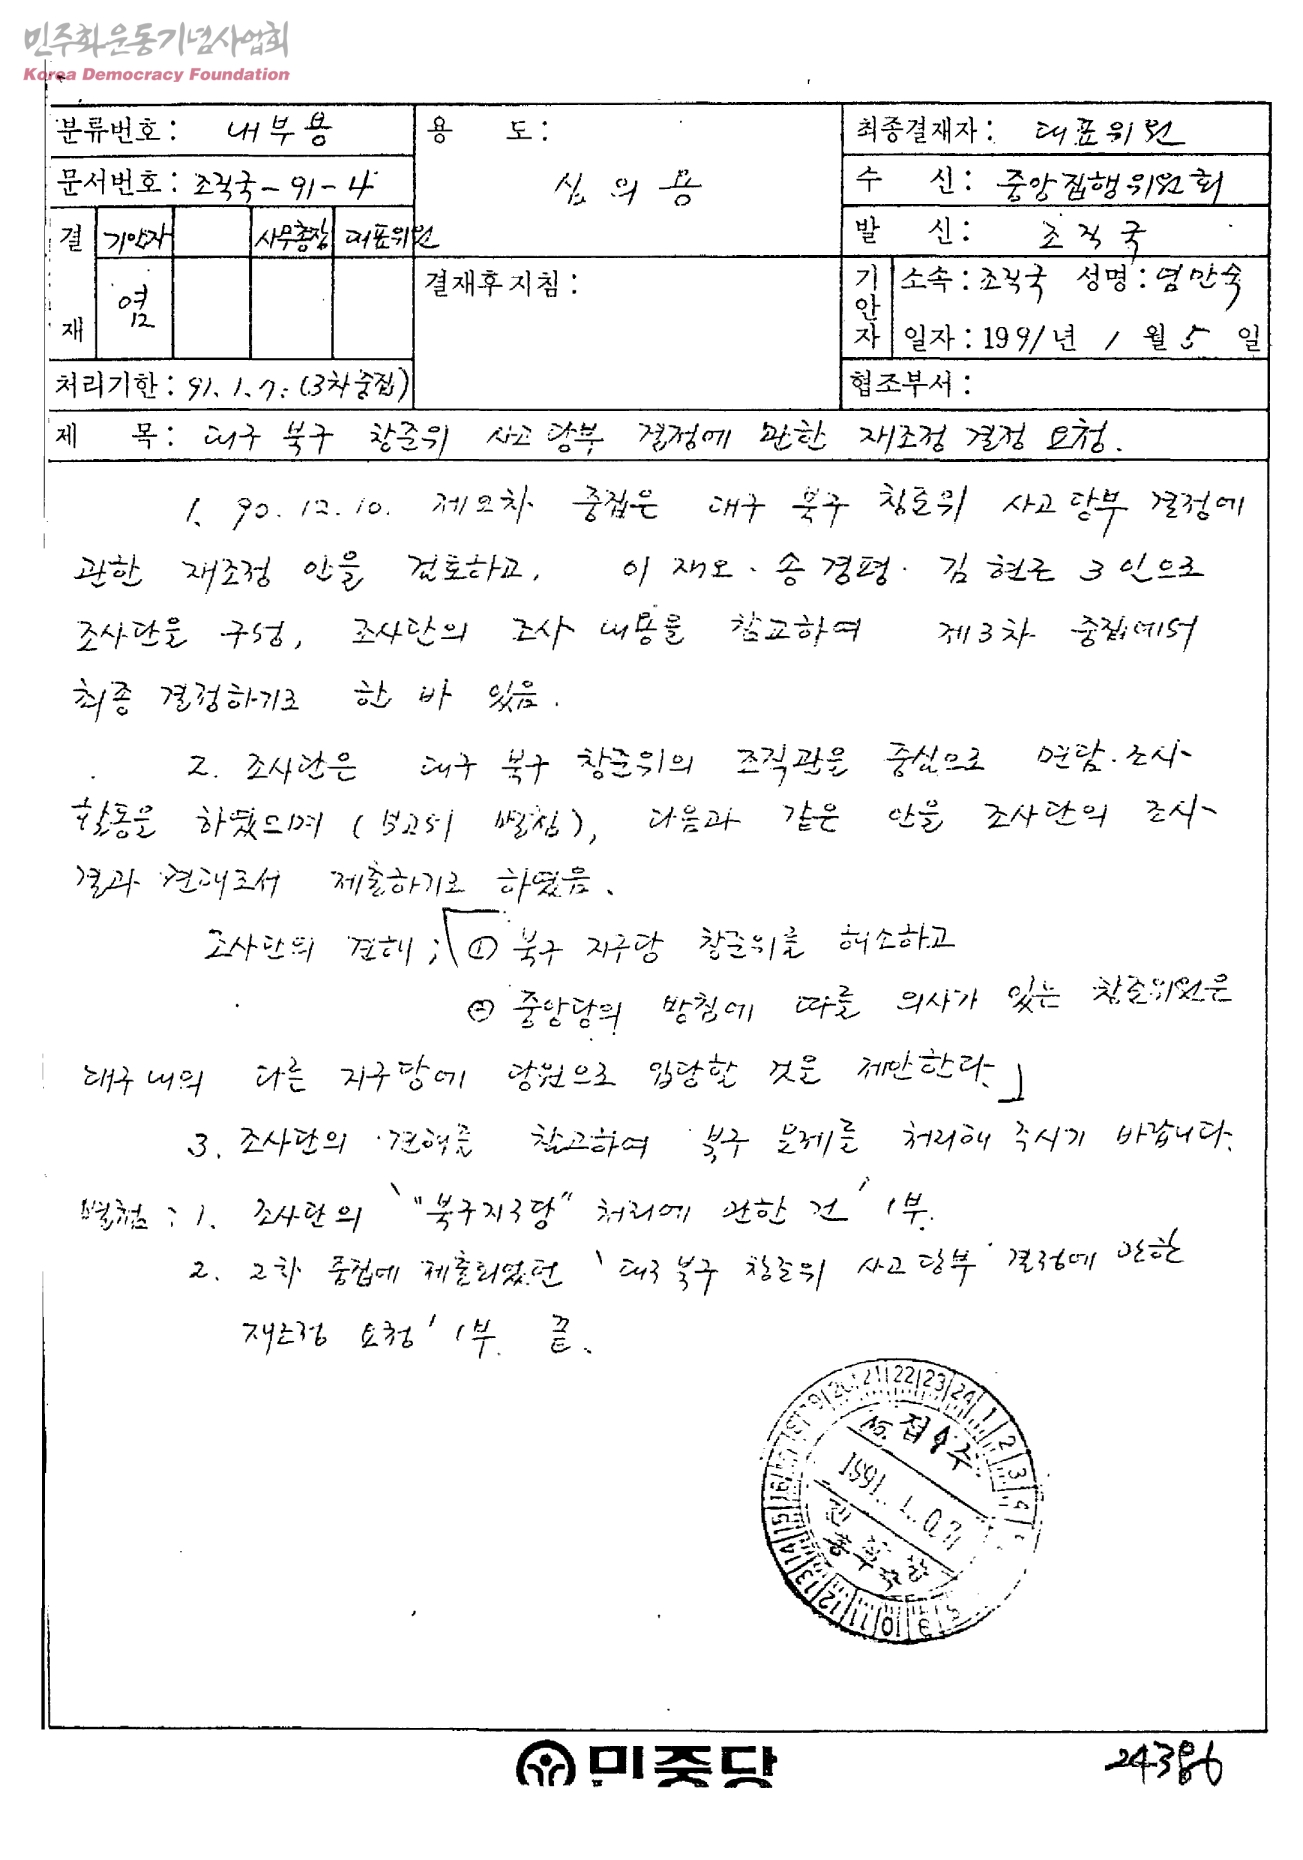 민주화운동기념사업회
Korea Democracy Foundation
분류번호: 내부용
용 도:
최종결재자: 대표위원
문서번호: 조직국-91-4
심의용
수 신: 중앙집행위원회
결 재
기안자 사무총장 대표위원
발 신: 조직국
염
결재후지침:
기안자 소속: 조직국 성명: 염만숙
일자: 1991년 1월 5일
처리기한: 91.1.7. (3차중집)
협조부서:
제 목: 대구 북구 창준위 사고당부 결정에 관한 재조정 결정 요청.
1. 90.12.10. 제2차 중집은 대구 북구 창준위 사고당부 결정에
관한 재조정 안을 검토하고, 이재오·송경평·김현근 3인으로
조사단을 구성, 조사단의 조사 내용을 참고하여 제3차 중집에서
최종 결정하기로 한 바 있음.
2. 조사단은 대구 북구 창준위의 조직관을 중심으로 면담·조사
활동을 하였으며 (보고서 별첨), 다음과 같은 안을 조사단의 조사
결과 견해로서 제출하기로 하였음.
조사단의 견해; 「① 북구 지구당 창준위를 해소하고
② 중앙당의 방침에 따를 의사가 있는 창준위원은
대구내의 다른 지구당에 당원으로 입당할 것을 제안한다.」
3. 조사단의 견해를 참고하여 북구 문제를 처리해 주시기 바랍니다.
별첨: 1. 조사단의 '"북구지구당" 처리에 관한 건' 1부.
2. 2차 중집에 제출되었던 '대구 북구 창준위 사고당부 결정에 관한
재조정 요청' 1부. 끝.
접수
1991. 1. 07
민중당
총무국
민중당